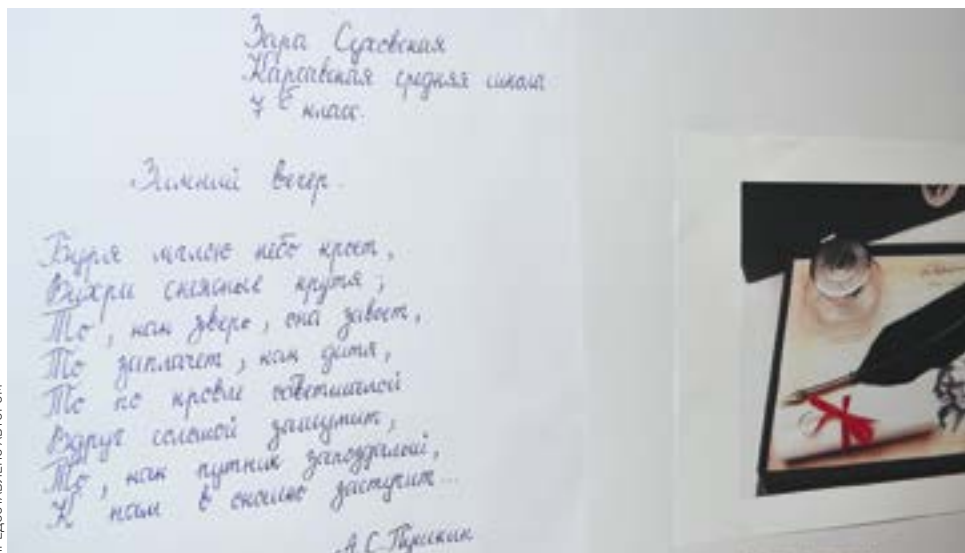 Зара Суховская
Карсавская средняя школа
7 б класс.
Зимний вечер.
Буря мглою небо кроет,
Вихри снежные крутя;
То, как зверь, она завоет,
То заплачет, как дитя,
То по кровле обветшалой
Вдруг соломой зашумит,
То, как путник запоздалый,
К нам в окошко застучит...
А.С.Пушкин